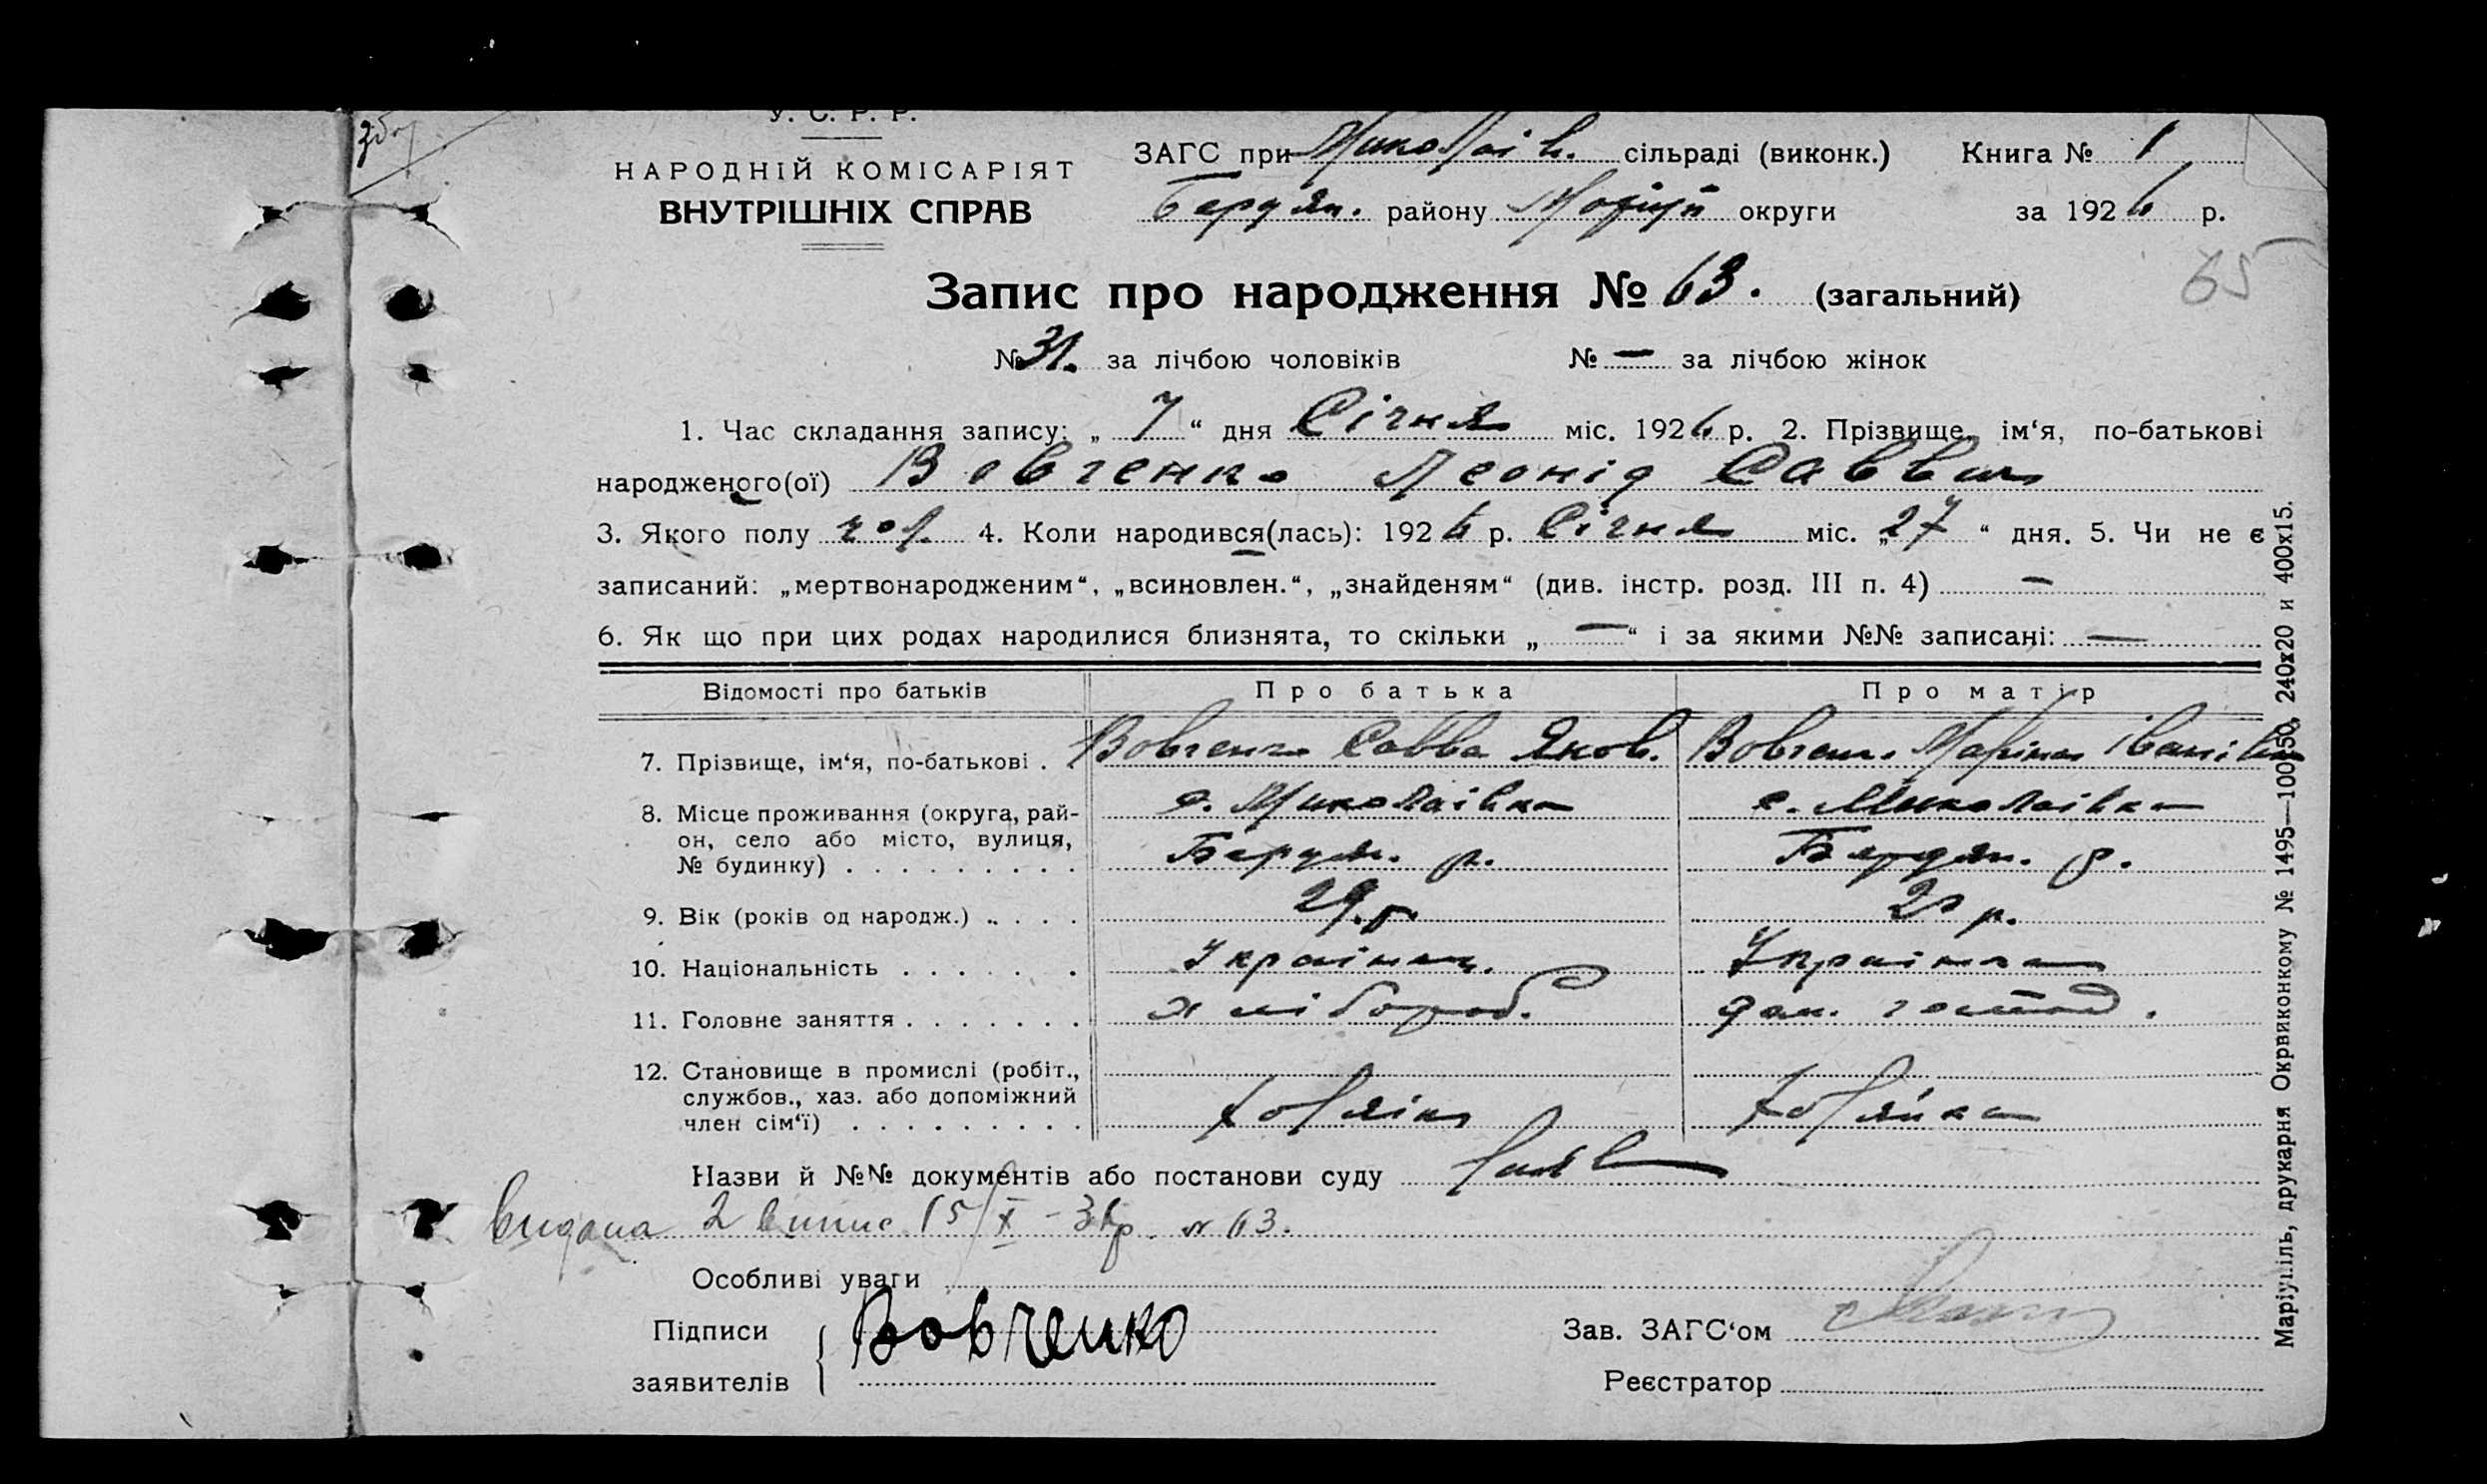 У. С. Р. Р.
НАРОДНІЙ КОМІСАРІЯТ
ВНУТРІШНІХ СПРАВ
ЗАГС при Миколаїв. сільраді (виконк.) Книга № 1
Бердян. району округи за 1926 р.
65
Запис про народження № 63. (загальний)
№ 31. за лічбою чоловіків № — за лічбою жінок
1. Час складання запису: „ 7 “ дня Січня міс. 1926 р. 2. Прізвище, ім‘я, по-батькові
народженого(ої) Вовченко Леонід Саввич
3. Якого полу чол. 4. Коли народився(лась): 1926 р. Січня міс. „27“ дня. 5. Чи не є
записаний: „мертвонародженим“, „всиновлен.“, „знайденям“ (див. інстр. розд. III п. 4) —
6. Як що при цих родах народилися близнята, то скільки „ — “ і за якими №№ записані: —
Відомості про батьків Про батька Про матір
7. Прізвище, ім‘я, по-батькові . . Вовченко Савва Яков. Вовченко Марина Іванівна
8. Місце проживання (округа, рай-
он, село або місто, вулиця,
№ будинку) . . . . . . . . .
с. Миколаївка с. Миколаївка
Бердян. р. Бердян. р.
9. Вік (років од народж.) . . . . 29 р.
10. Національність . . . . . . Українец. Українка
11. Головне заняття . . . . . . . хлібороб. дом. господ.
12. Становище в промислі (робіт.,
службов., хаз. або допоміжний
член сім‘ї) . . . . . . . . .
Назви й №№ документів або постанови суду
видана 2 випис 15/X - 3 р. № 63.
Особливі уваги
Підписи
заявителів
Вовченко
Зав. ЗАГС‘ом
Реєстратор
Маріупіль, друкарня Окрвиконкому № 1495—100150, 240х20 и 400х15.